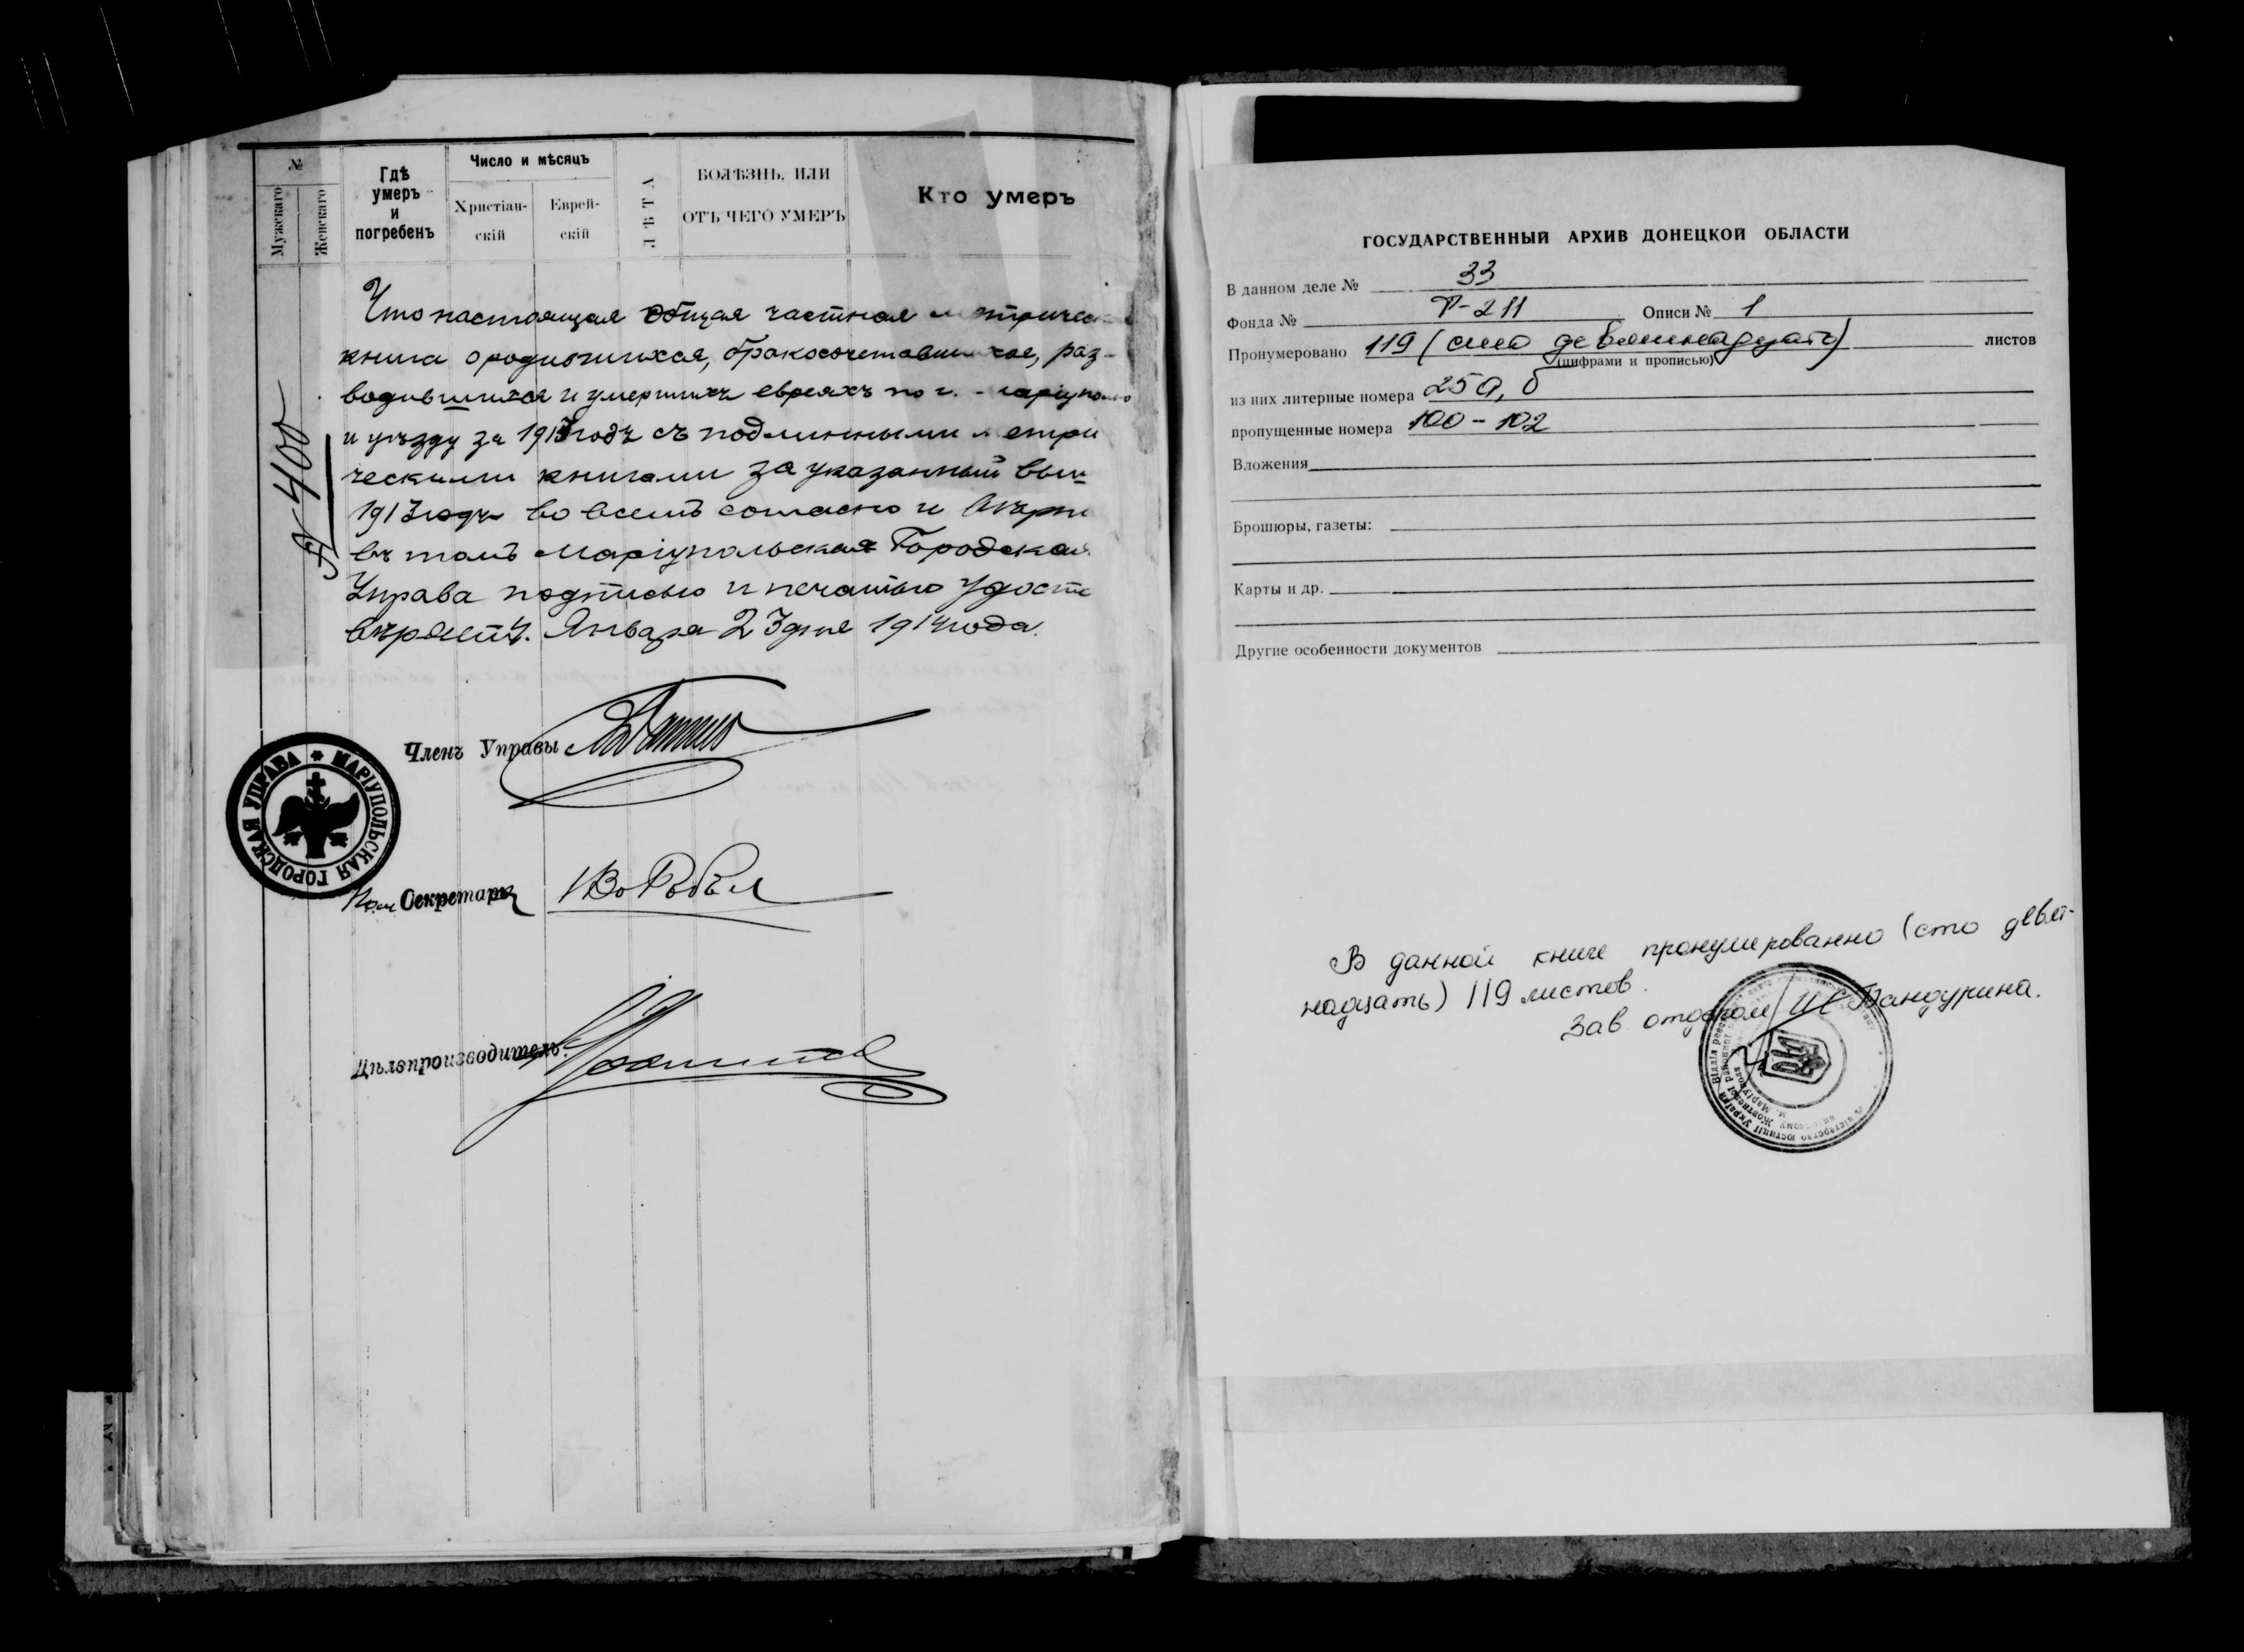 №
Мужскаго
Женскаго
Гдѣ
умеръ
и
погребенъ
Число и мѣсяцъ
Христіан-
скій
Еврей-
скій
ЛѢТА
БОЛѢЗНЬ, ИЛИ
ОТЪ ЧЕГО УМЕРЪ
Кто умеръ
Что настоящая общая частная метричес
книга о родившихся, бракосочетавшихся, раз-
водившихся и умершихъ евреяхъ по г. Маріуполю
и уѣзду за 1913 годъ съ подлинными метри
ческими книгами за указанный выш
1913 годъ во всемъ согласно и вѣрно
въ томъ Маріупольская Городская
Управа подписью и печатью удосто
вѣряетъ. Января 23 дня 1914 года.
№ 400
Членъ Управы
МАРІУПОЛЬСКАЯ ГОРОДСКАЯ УПРАВА
Пом Секретаря
Дѣлопроизводитель
ГОСУДАРСТВЕННЫЙ АРХИВ ДОНЕЦКОЙ ОБЛАСТИ
В данном деле № 33
Фонда № Р-211 Описи № 1
Пронумеровано 119 (сто девятнадцать) листов
(цифрами и прописью)
из них литерные номера 25а, б
пропущенные номера 100-102
Вложения
Брошюры, газеты:
Карты и др.
Другие особенности документов
В данной книге пронумированно (сто девят-
надцать) 119 листов.
Зав. отделом Бандурина.